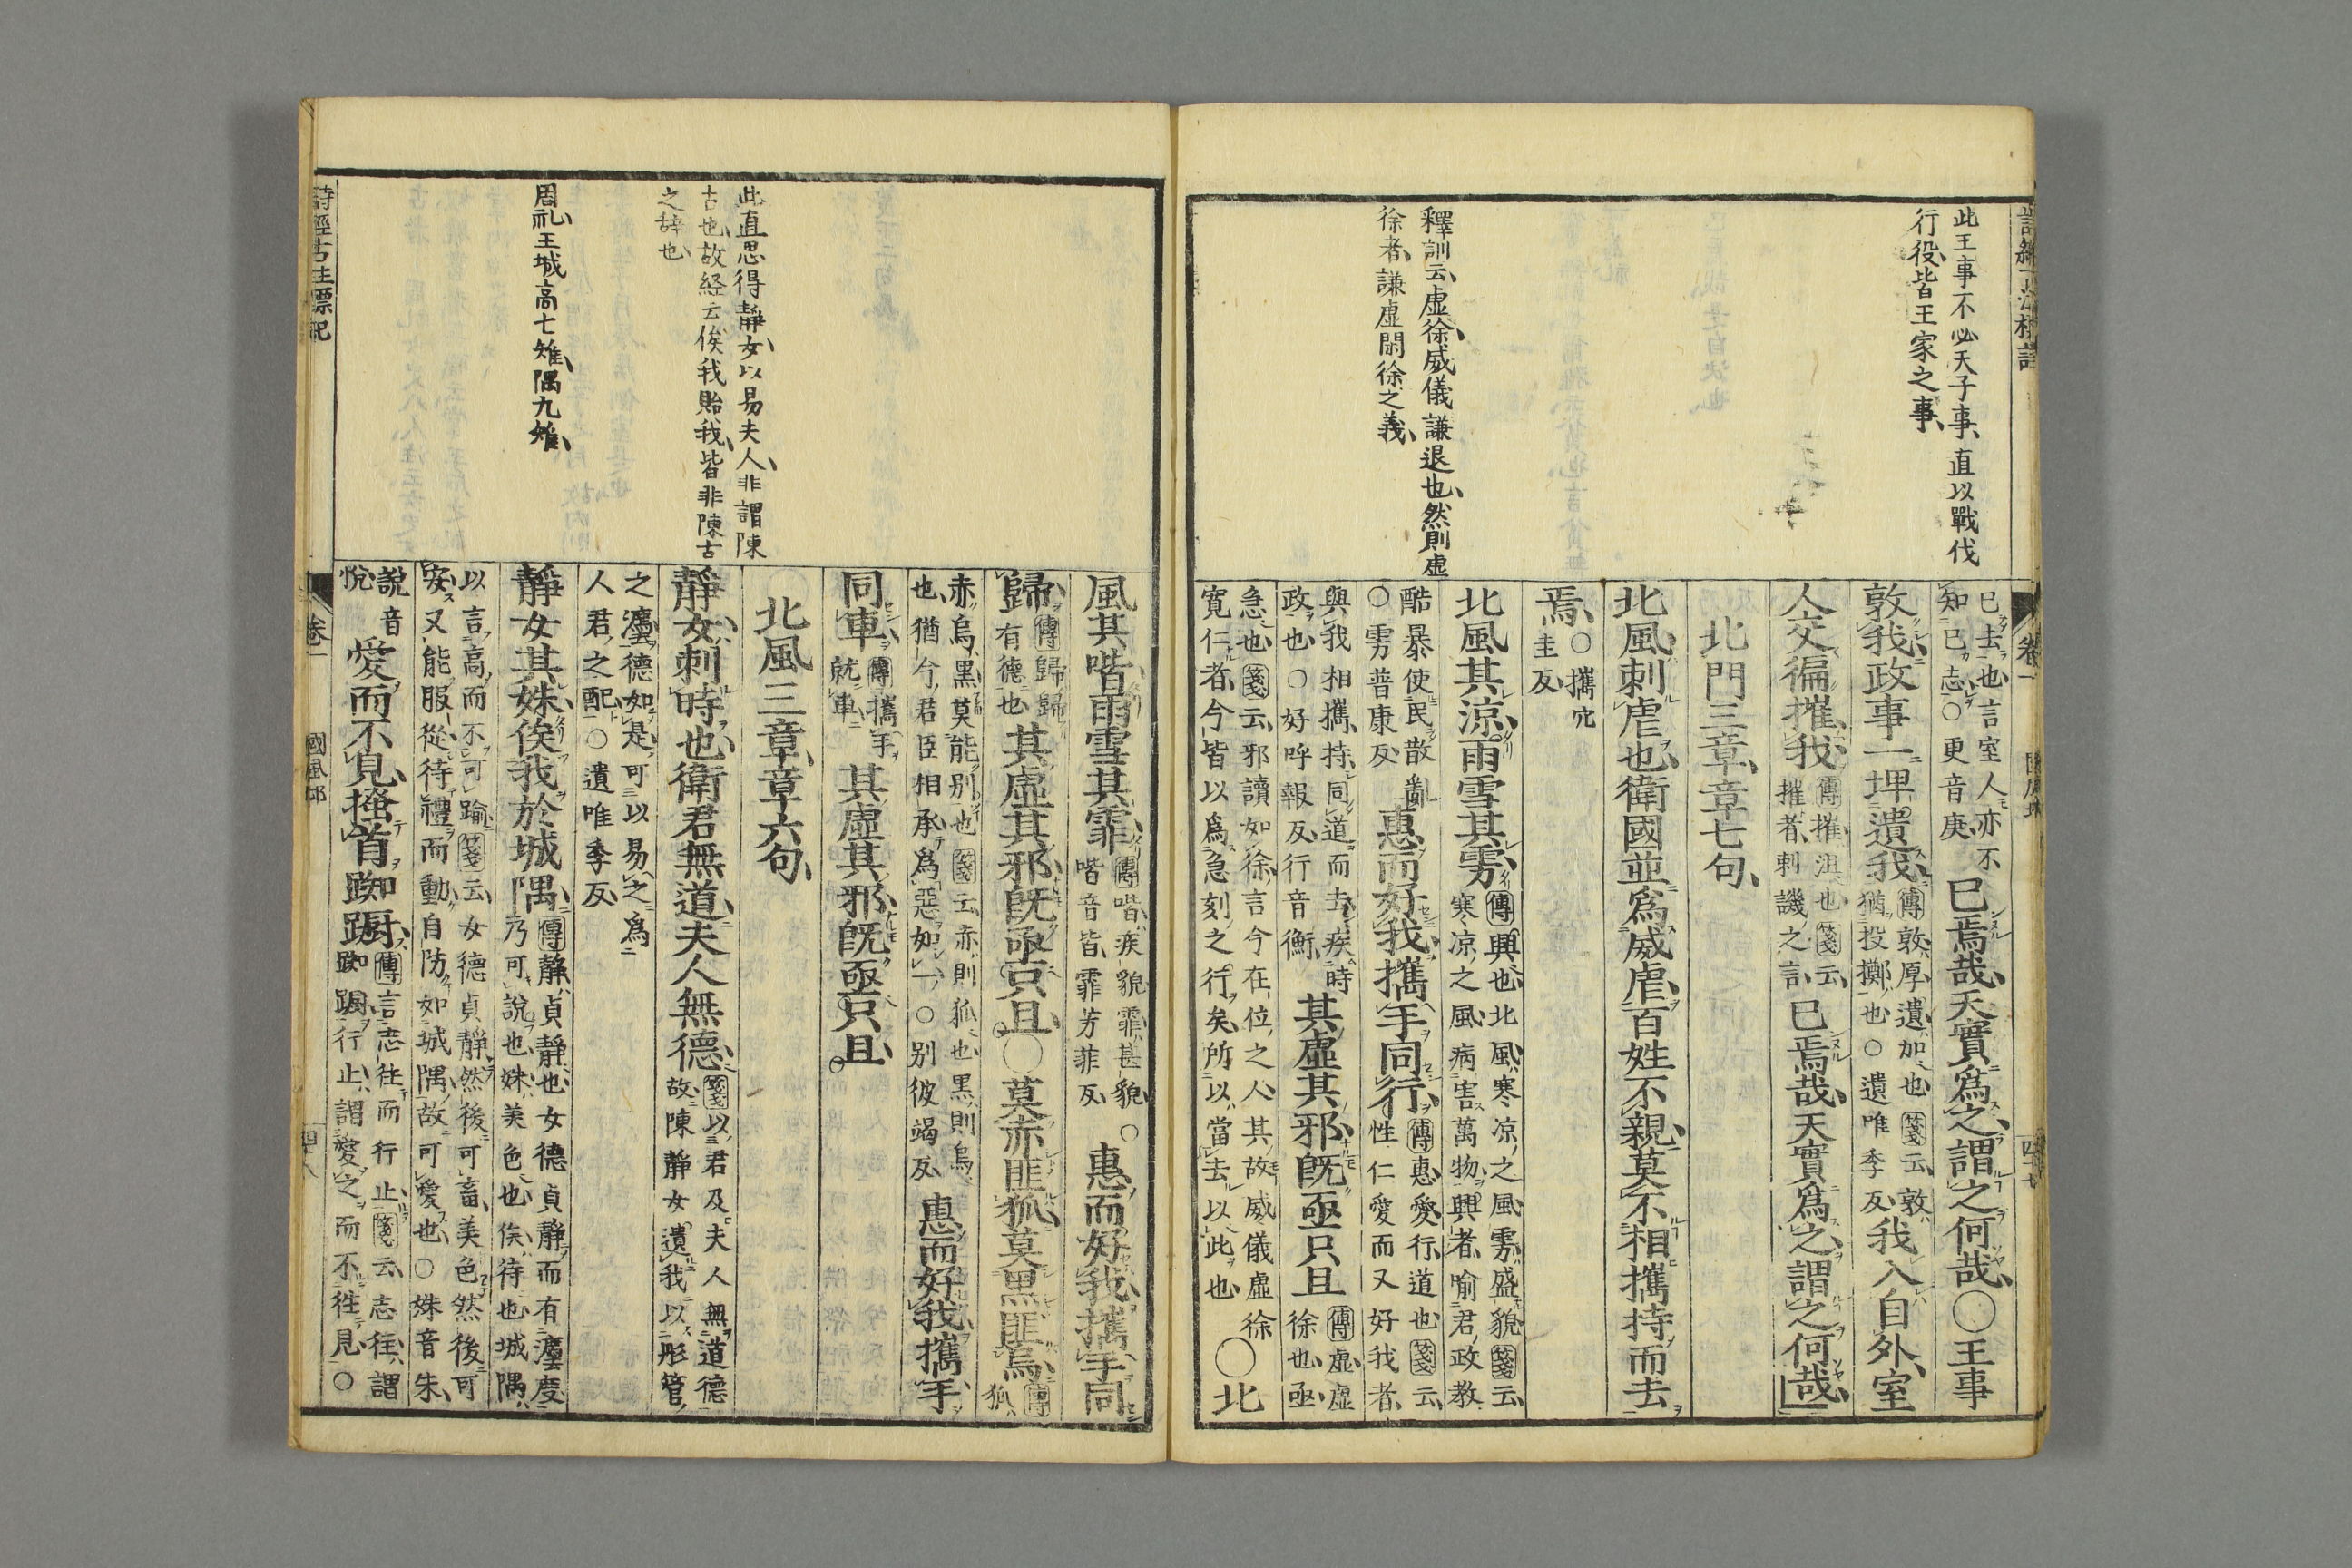 此王事不必天子事直以戰伐
行役皆王家之事
釋訓云虛徐威儀謙退也然則虛
徐者謙虛閑徐之義
已去也言室人亦不
知已志○更音庚
已焉哉天實爲之謂之何哉○王事
敦我政事一埤遺我
傳敦厚遺加也箋云敦
猶投擲也○遺唯季反
我入自外室
人交徧摧我
傳摧沮也箋云
摧者刺譏之言
已焉哉天實爲之謂之何哉
北門三章章七句
北風刺虐也衛國並爲威虐百姓不親莫不相攜持而去
焉
○攜穴
圭反
北風其涼雨雪其雱
傳興也北風寒涼之風雱盛貌箋云
寒涼之風病害萬物興者喻君政教
酷暴使民散亂
○雱普康反
惠而好我攜手同行
傳惠愛行道也箋云
性仁愛而又好我者
與我相攜持同道而去疾時
政也○好呼報反行音衡
其虛其邪旣亟只且
傳虛虛
徐也亟
急也箋云邪讀如徐言今在位之人其故威儀虛徐
寬仁者今皆以爲急刻之行矣所以當去以此也
○北
風其喈雨雪其霏
傳喈疾貌霏甚貌○
喈音皆霏芳菲反
惠而好我攜手同
歸
傳歸歸
有德也
其虛其邪旣亟只且○莫赤匪狐莫黑匪烏
傳
狐
赤烏黑莫能别也箋云赤則狐也黑則烏
也猶今君臣相承爲惡如一○别彼竭反
惠而好我攜手
同車
傳攜手
就車
其虛其邪旣亟只且
北風三章章六句
靜女刺時也衛君無道夫人無德
箋以君及夫人無道德
故陳靜女遺我以彤管
之灋德如是可以易之爲
人君之配○遺唯季反
靜女其姝俟我於城隅
傳靜貞靜也女德貞靜而有灋度
乃可說也姝美色也俟待也城隅
以言高而不可踰箋云女德貞靜然後可畜美色然後可
安又能服從待禮而動自防如城隅故可愛也○姝音朱
說音
悅
愛而不見搔首踟躕
傳言志往而行止箋云志往謂
踟躕行止謂愛之而不往見○
此直思得靜女以易夫人非謂陳
古也故経云俟我貽我皆非陳古
之辞也
周礼王城高七雉隅九雉
詩經古註標記
卷一
國風邶